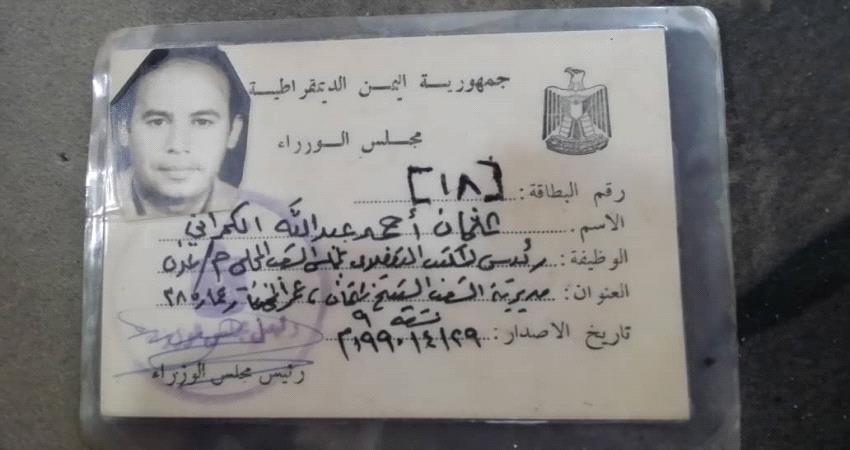 جمهورية اليمن الديمقراطية
مجلس الوزراء
رقم البطاقة: [١٨]
الاسم: عثمان أحمد عبدالله الكمراني
الوظيفة: رئيس المكتب التنفيذي مجلس الشعب المحلي م/عدن
العنوان: مديرية الشيخ عثمان / عمر المختار عمارة ٣٨
شقة ٩
تاريخ الاصدار: ١٩٩٠/٤/٢٩م
رئيس مجلس الوزراء